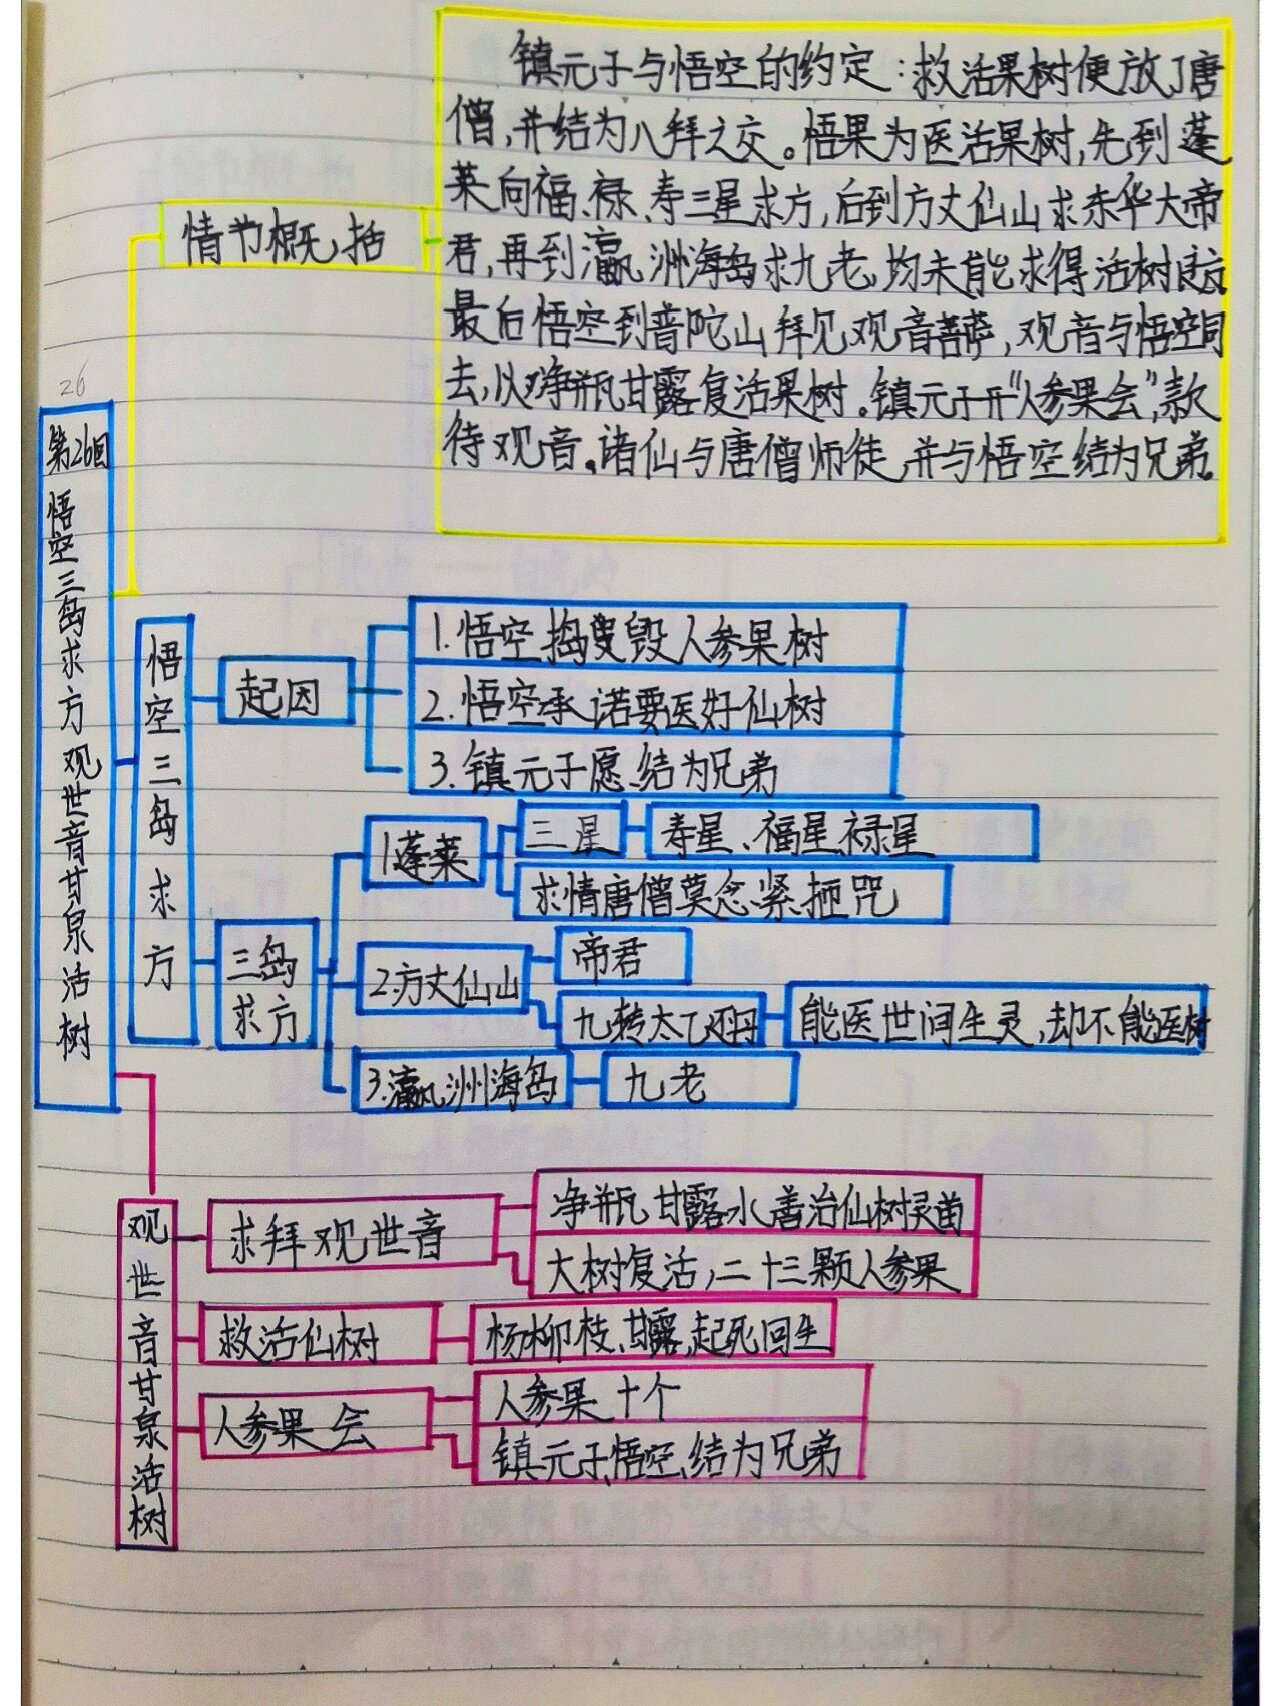 镇元子与悟空的约定:救活果树便放了唐
僧,并结为八拜之交。悟果为医活果树,先到蓬
莱向福、禄、寿三星求方,后到方丈仙山求东华大帝
君,再到瀛洲海岛求九老,均未能求得活树良方。
最后悟空到普陀山拜见观音菩萨,观音与悟空同
去,以净瓶甘露复活果树。镇元子开“人参果会”,款
待观音。诸仙与唐僧师徒,并与悟空结为兄弟。
情节概括
26
第26回
悟空三岛求方 观世音甘泉活树
悟空三岛求方
起因
1.悟空捣毁人参果树
2.悟空承诺要医好仙树
3.镇元子愿结为兄弟
三岛
求方
1.蓬莱
三星
寿星、福星、禄星
求情唐僧莫念紧箍咒
2.方丈仙山
帝君
九转太乙还丹
能医世间生灵,却不能医树
3.瀛洲海岛
九老
观世音甘泉活树
求拜观世音
净瓶甘露水善治仙树灵苗
大树复活,二十三颗人参果
救活仙树
杨柳枝、甘露,起死回生
人参果会
人参果十个
镇元子、悟空、结为兄弟